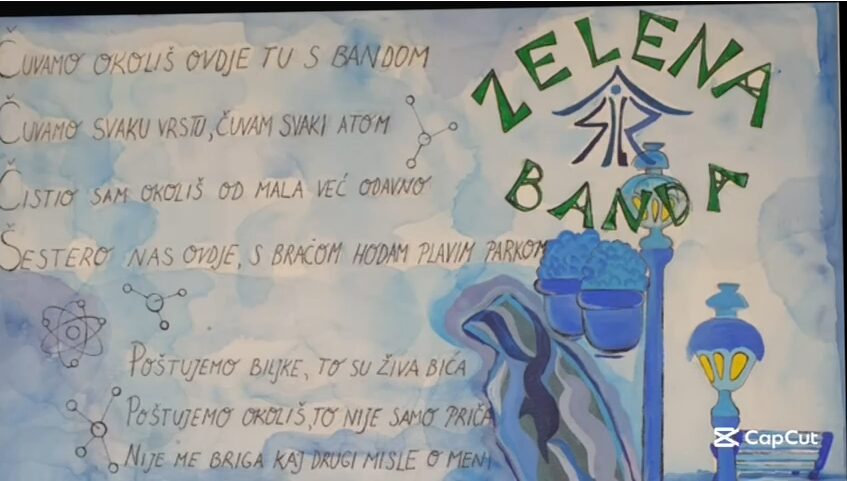 ČUVAMO OKOLIŠ OVDJE TU S BANDOM
ČUVAMO SVAKU VRSTU, ČUVAM SVAKI ATOM
ČISTIO SAM OKOLIŠ OD MALA VEĆ ODAVNO
ŠESTERO NAS OVDJE, S BRAĆOM HODAM PLAVIM PARKOM
POŠTUJEMO BILJKE, TO SU ŽIVA BIĆA
POŠTUJEMO OKOLIŠ, TO NIJE SAMO PRIČA
NIJE ME BRIGA KAJ DRUGI MISLE O MENI
ZELENA
BANDA
CapCut